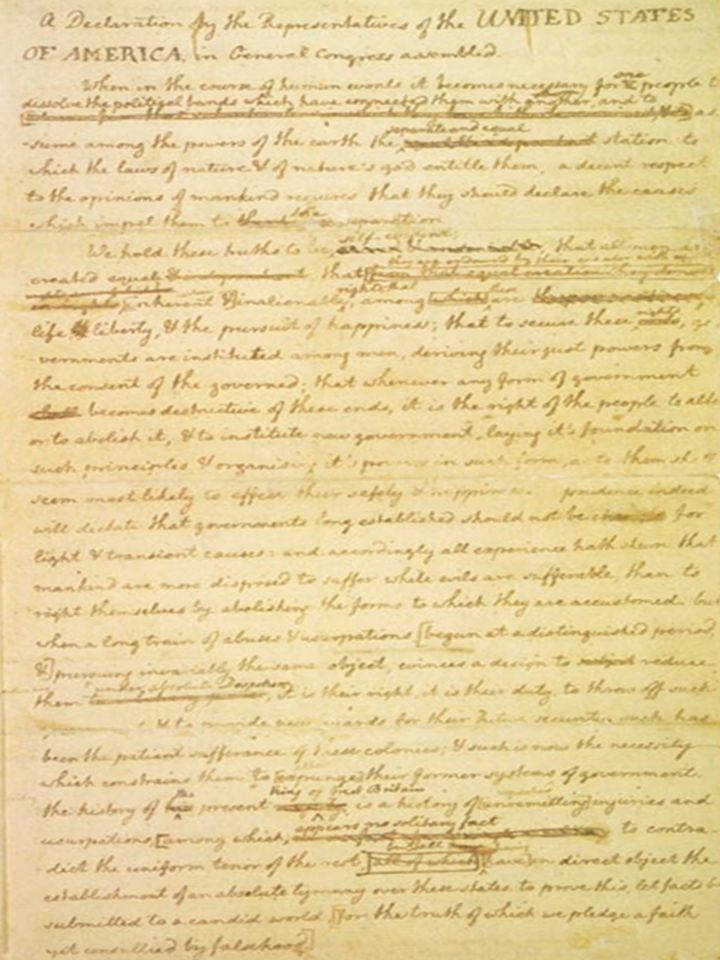 A Declaration by the Representatives of the UNITED STATES
OF AMERICA, in General Congress assembled.
When in the course of human events it becomes necessary for one people to
dissolve the political bands which have connected them with another, and to
as
separate and equal
-sume among the powers of the earth the station to
which the laws of nature & of nature's god entitle them, a decent respect
to the opinions of mankind requires that they should declare the causes
which impel them to the separation.
self-evident;
We hold these truths to be that all men are
they are endowed by their creator with
created equal that from that equal creation they
rights; that these
inherent & inalienable among which are
life liberty, & the pursuit of happiness; that to secure these rights, go
-vernments are instituted among men, deriving their just powers from
the consent of the governed; that whenever any form of government
becomes destructive of these ends, it is the right of the people to alter
or to abolish it, & to institute new government, laying it's foundation on
such principles & organising it's powers in such form, as to them sh
seem most likely to effect their safety & happiness. prudence indeed
will dictate that governments long established should not be for
light & transient causes: and accordingly all experience hath shewn that
mankind are more disposed to suffer while evils are sufferable, than to
right themselves by abolishing the forms to which they are accustomed. but
when a long train of abuses & usurpations [begun at a distinguished period,
&] pursuing invariably the same object, evinces a design to reduce
under absolute Despotism
them it is their right, it is their duty, to throw off such
& to provide new guards for their future security. such has
been the patient sufferance of these colonies; & such is now the necessity
which constrains them to [expunge] their former systems of government.
the king of Great Britain
the history of present is a history of [unremitting] injuries and
appears no solitary fact
usurpations, [among which, to contra-
in direct
dict the uniform tenor of the rest, [all of which] [have] in direct object the
establishment of an absolute tyranny over these states. to prove this, let facts be
submitted to a candid world [for the truth of which we pledge a faith
yet unsullied by falsehood]